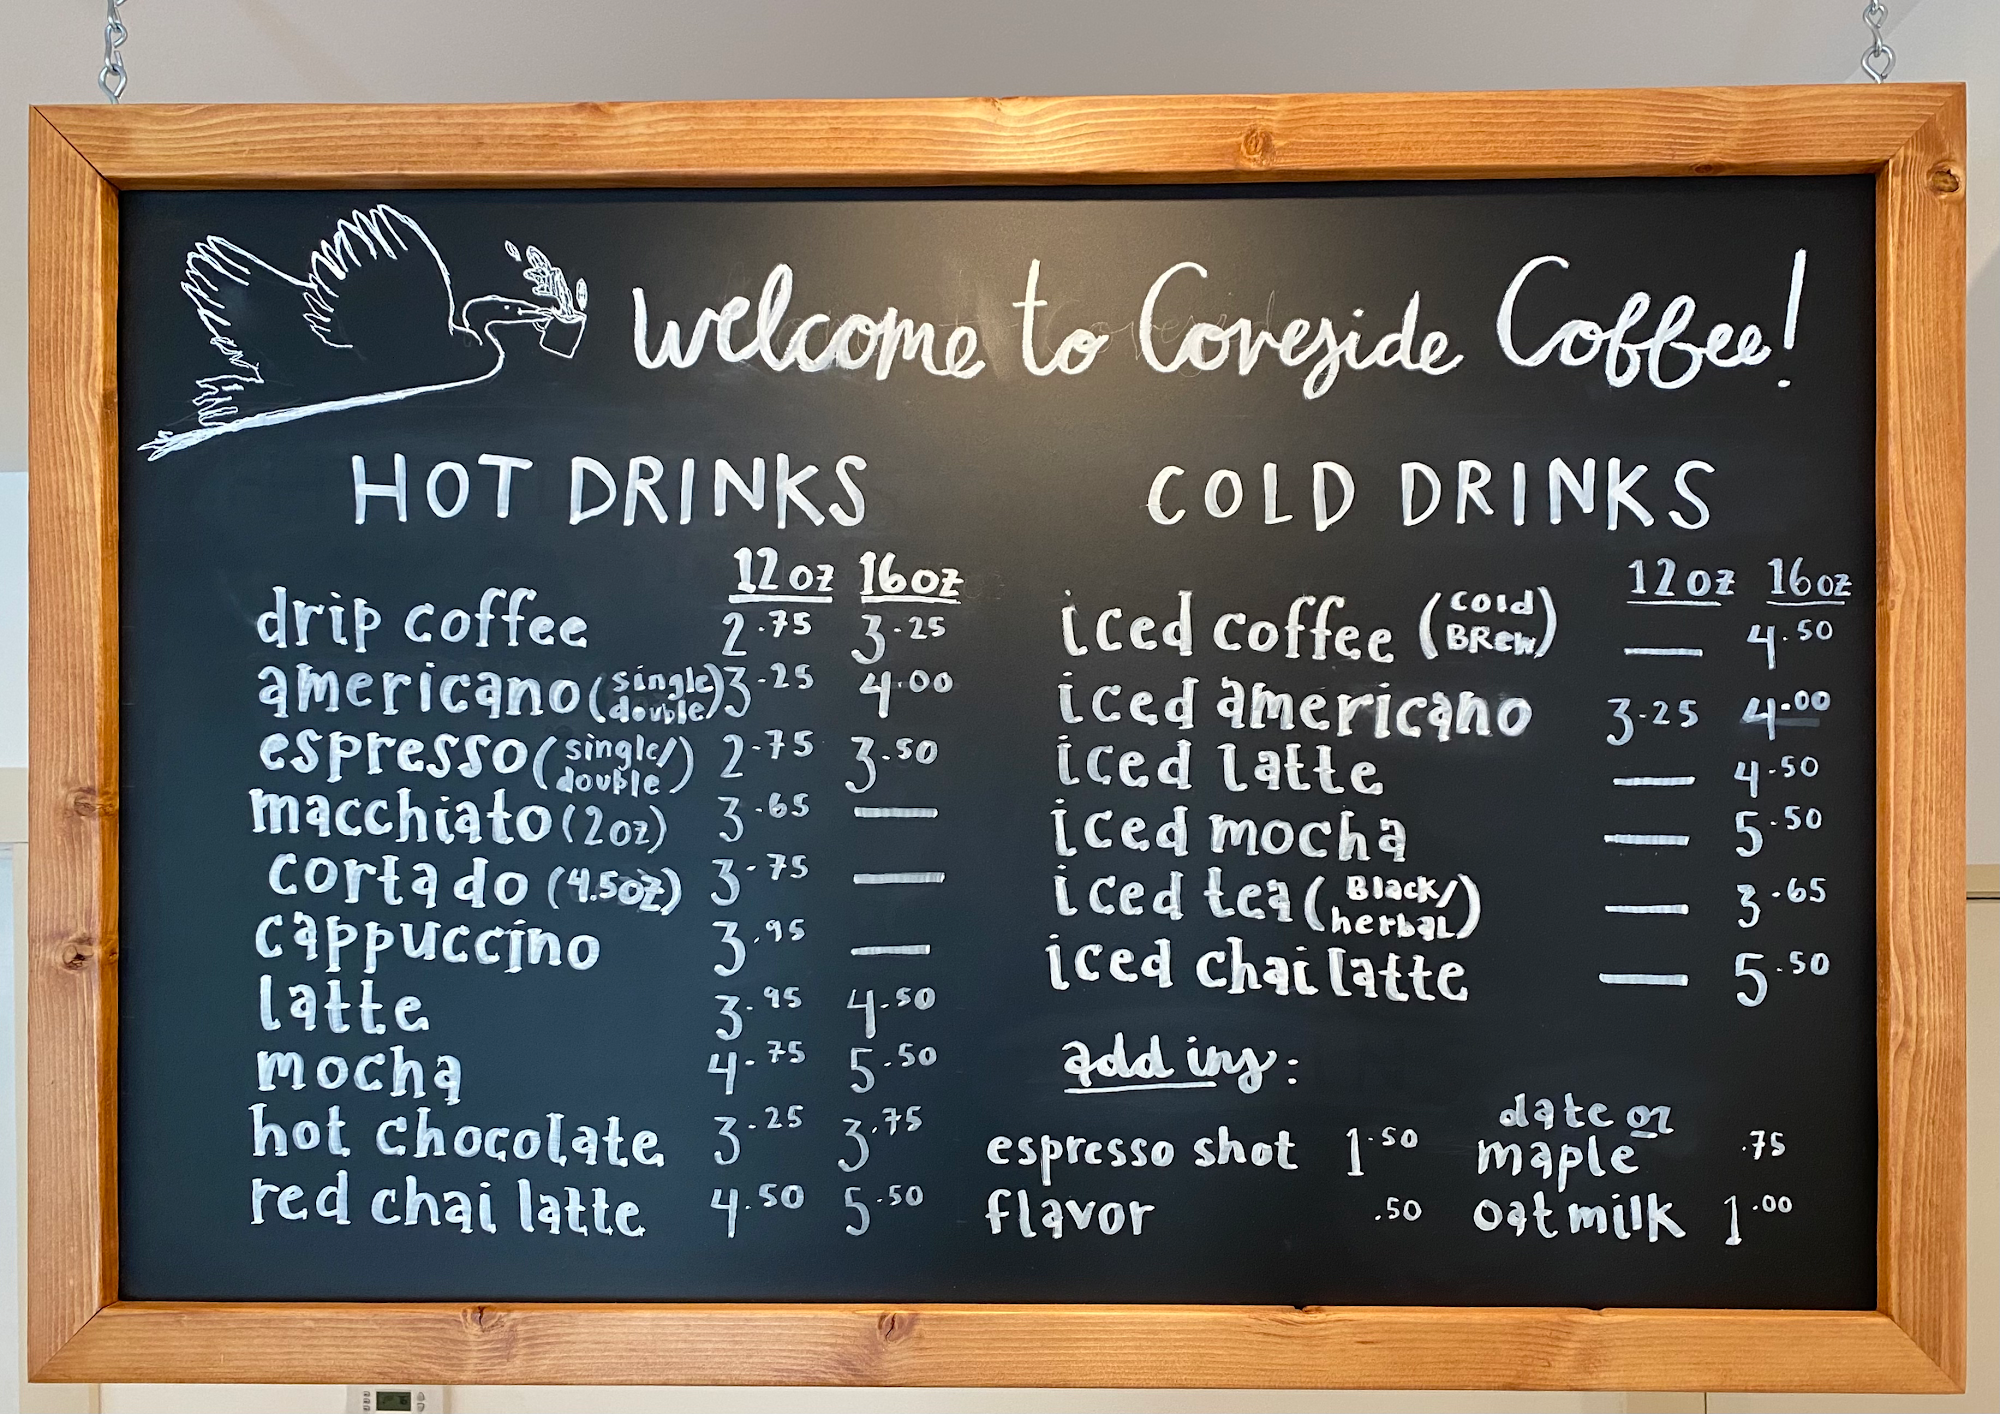 welcome to Coveside Coffee!
HOT DRINKS
12oz 16oz
drip coffee 2.75 3.25
americano (single double) 3.25 4.00
espresso (single/ double) 2.75 3.50
macchiato (2oz) 3.65 —
cortado (4.5oz) 3.75 —
cappuccino 3.95 —
latte 3.95 4.50
mocha 4.75 5.50
hot chocolate 3.25 3.75
red chai latte 4.50 5.50
COLD DRINKS
12oz 16oz
iced coffee (cold BRew) — 4.50
iced americano 3.25 4.00
iced latte — 4.50
iced mocha — 5.50
iced tea (Black/ herbal) — 3.65
iced chai latte — 5.50
add ins:
espresso shot 1.50
flavor .50
date or
maple .75
oat milk 1.00